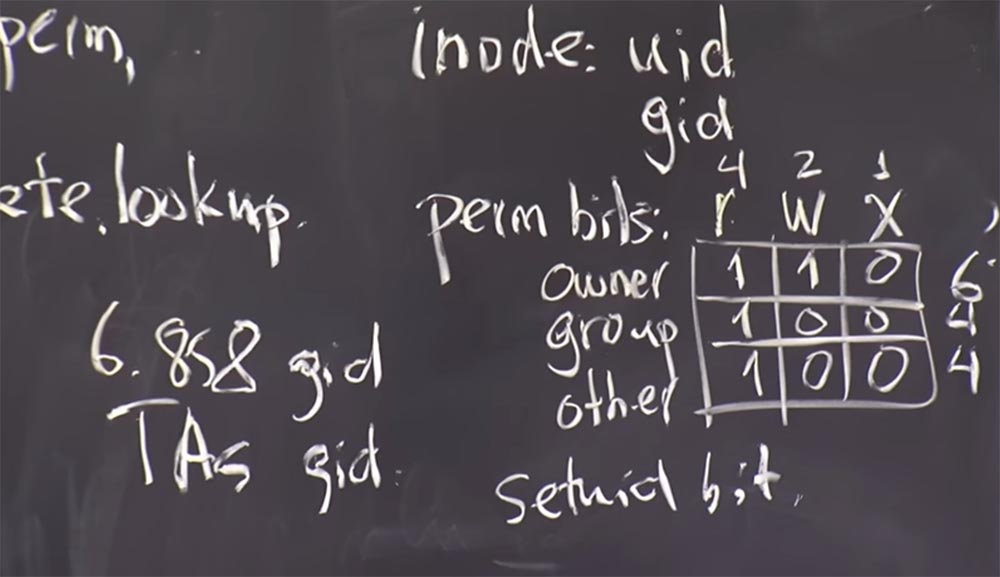 perm,
ete.lookup.
6.858 gid
TAs gid.
inode: uid
gid
4 2 1
perm bits: r w x
owner 1 1 0 6
group 1 0 0 4
other 1 0 0 4
setuid bit.